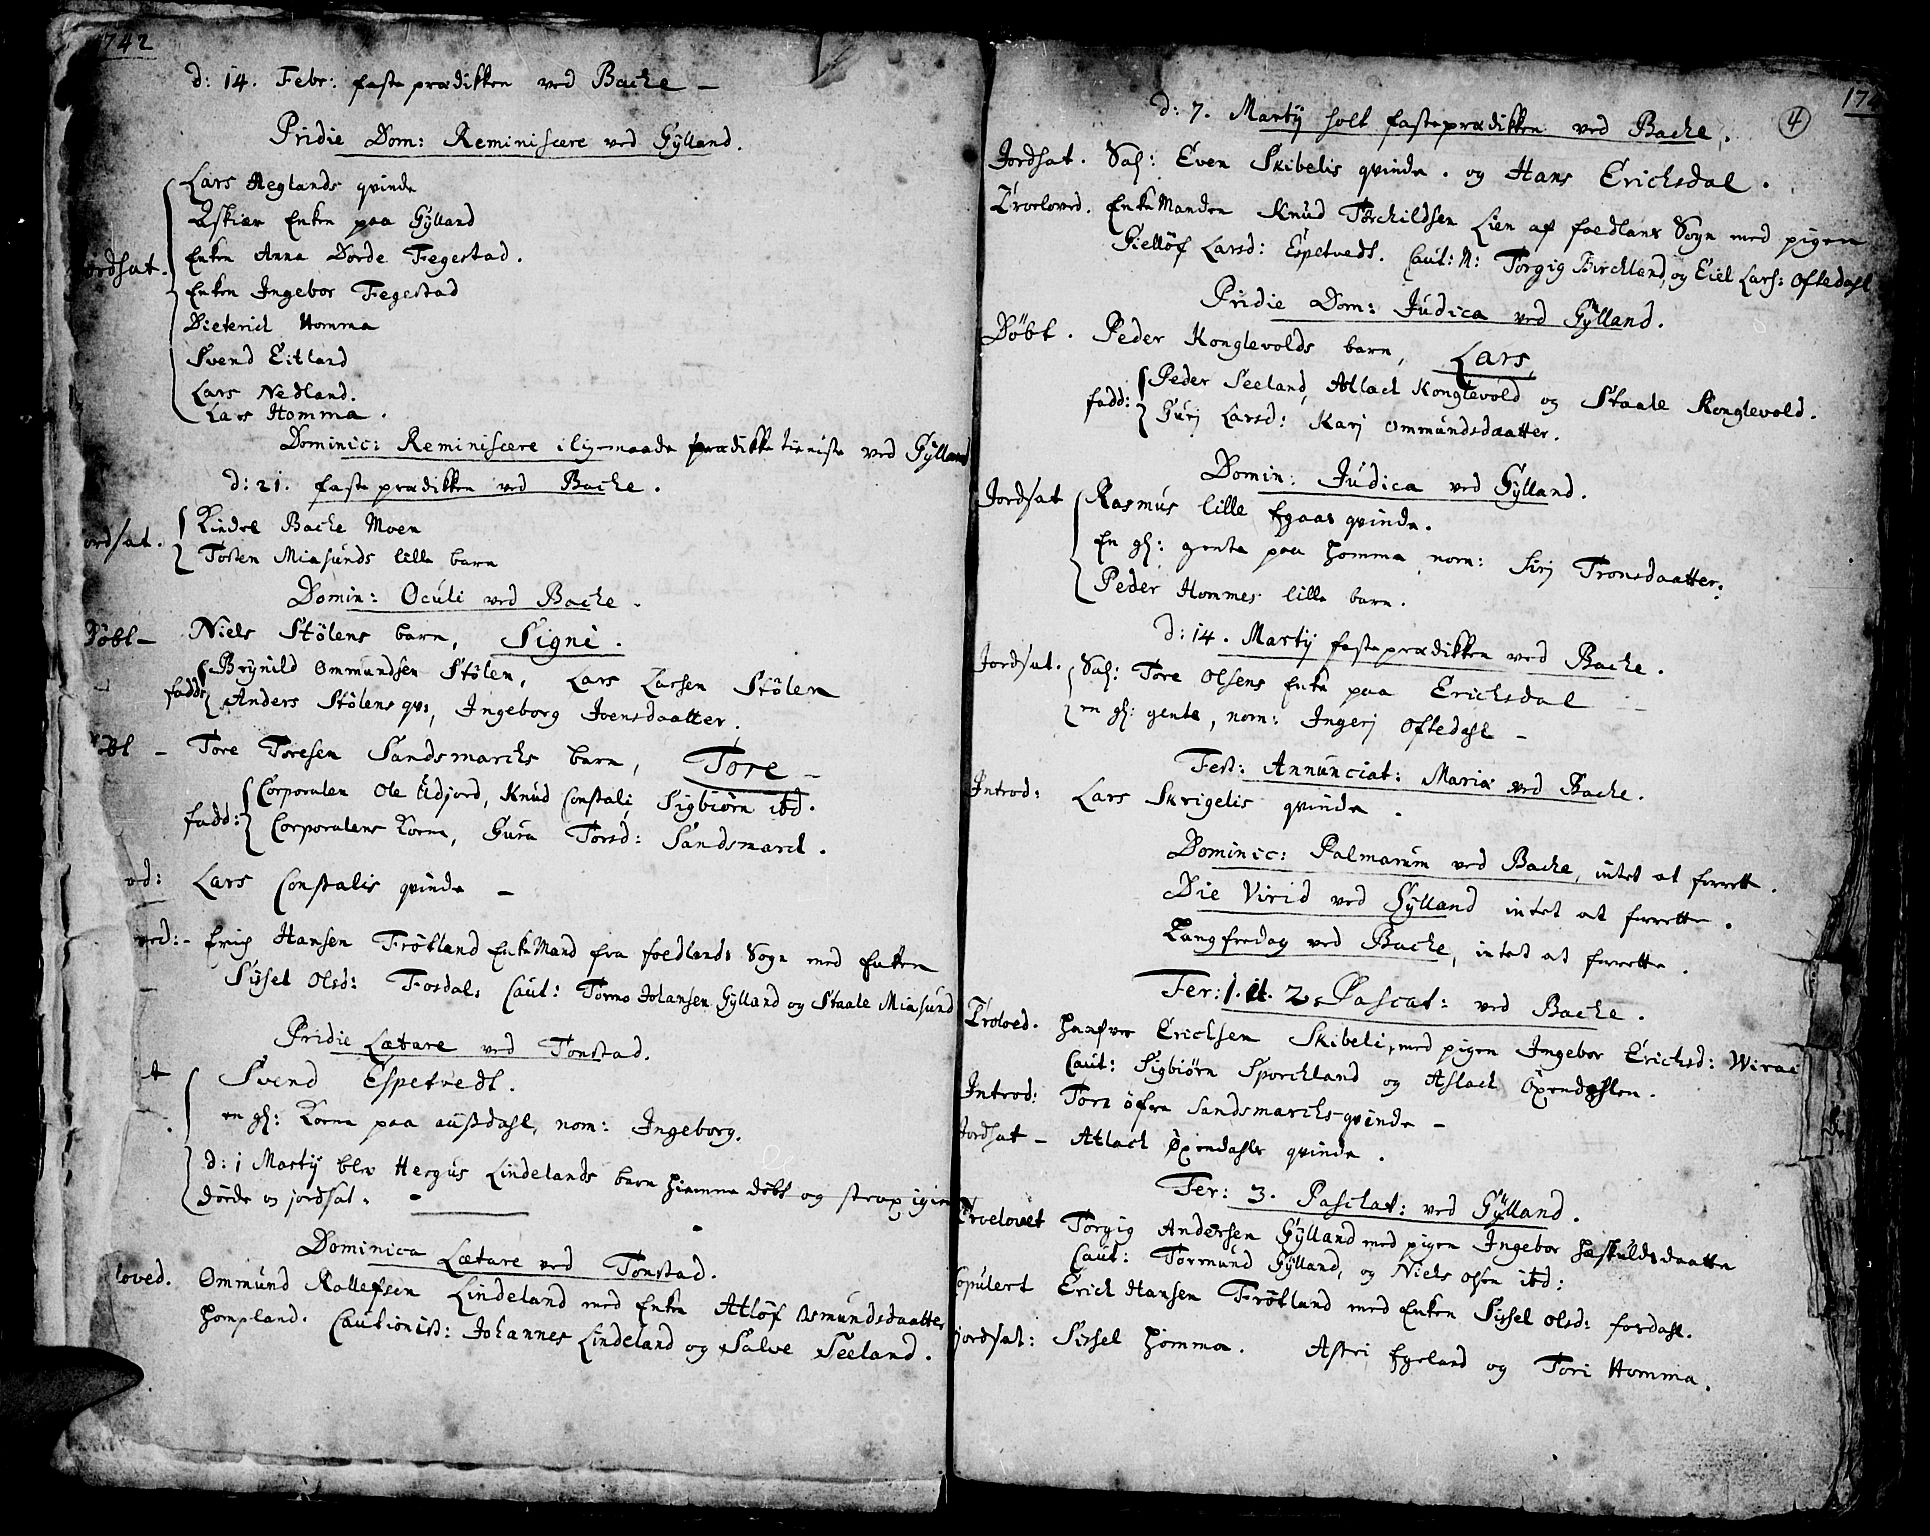 1742
d: 14. Febr: faste prædikken ved Bache –
Pridie Dom: Reminiscere ved Gÿlland.
Lars Reglands qvinde
Enken paa Gÿlland
Enken Anna Dorde Fegestad.
ordsat.
Enken Ingebor Fegestad
Dieterich Homma
Svend Eitland
Lars Nedland.
Lars Homma.
Dominic: Reminiscere iligemaade prædikke tieniste ved Gÿlland
d: 21. faste prædikken ved Bache.
ordsat.
Bache Moen
Tosten Miasunds lille barn
Domin: Oculi ved Bache.
Döbt – Niels Stölens barn, Signi.
fadd: Brÿnild Ommundsen Stölen, Lars Larsen Stölen
Anders Stölens qv:, Ingeborg Ivensdaatter.
öbt – Tore Toresen Sandsmarchs barn, Tore –
fadd: Corporalen Ole Udjord, Knud Constali, Sigbiörn itd.
Corporalens Kone, Gura Torsd: Sandsmarch.
od: Lars Constalis qvinde –
ved: – Erich Hansen Frötland EnkeMand fra foedlands Sogn med Enken
Sissel Olsd: Fosdal. Caut: Tormo Johansen Gÿlland og Staale Miasund
Pridie Lætare ved Tonstad.
Svend Espetvedt.
en gl: Kone paa ausdahl, nom: Ingeborg.
d: 1 Martÿ blev Hergus Lindelands barn hiemme döbt og strax igien
döde og jordsat.
Dominica Lætare ved Tonstad.
loved. Ommund Rollefsen Lindeland med Enke Atlöf Asmundsdaatter
Hompland. Cautionist: Johannes Lindeland og Salve Seeland.
174
4
d: 7. Martÿ holt fasteprædikken ved Bache.
Jordsat. Sal: Even Skibelis qvinde. og Hans Erichsdal.
Troeloved. EnkeManden Knud Torchildsen Lien af foedlans Sogn med pigen
Giellöf Larsd: Espetvedt. Caut: N: Torgig Birchland, og Eiel Lars: Oftedahl
Pridie Dom: Judica ved Gÿlland.
Döbt. Peder Konglevolds barn, Lars,
fadd: Peder Seeland, Atlach Konglevold og Staale Konglevold.
Guri Larsd: Kari Ommundsdaatter.
Domin: Judica ved Gÿlland.
Jordsat Rasmus lille Egaas qvinde.
En gl: gente paa Homma nom: Siri Tronsdaatter.
Peder Hommes lille barn.
d: 14. Martÿ faste prædikken ved Bache.
Jordsat. Sal: Tore Olsens Enke paa Erichsdal –
en gl: gente, nom: Ingeri Oftedahl –
Fest: Annunciat: Mariæ ved Bache.
Introd: Lars Skrigelis qvinde.
Dominic: Palmarum ved Bache, intet at forrette.
Die Virid ved Gÿlland intet at forrette.
Langfredag ved Bache, intet at forrette.
Fer: 1. et. 2. Pascat: ved Bache.
Troloved. Haafver Erichsen Skibeli, med pigen Ingebor Erichsd: Wirac
Caut: Sigbiörn Sporchland og Aslach Öxendahlen.
Introd: Tore öfre Sandsmarchs qvinde –
Jordsat – Atlach Öxendahls qvinde.
Fer: 3. Paschat: ved Gÿlland.
Troelovet Torgig Andersen Gÿlland med pigen Ingebor Haskuldsdaatter
Caut: Tormund Gÿlland, og Niels Olsen itd:
Copulert Erich Hansen Frötland med Enken Sissel Olsd: fosdahl.
jordsat: Sissel Homma. Astri Egeland og Tori Homma.